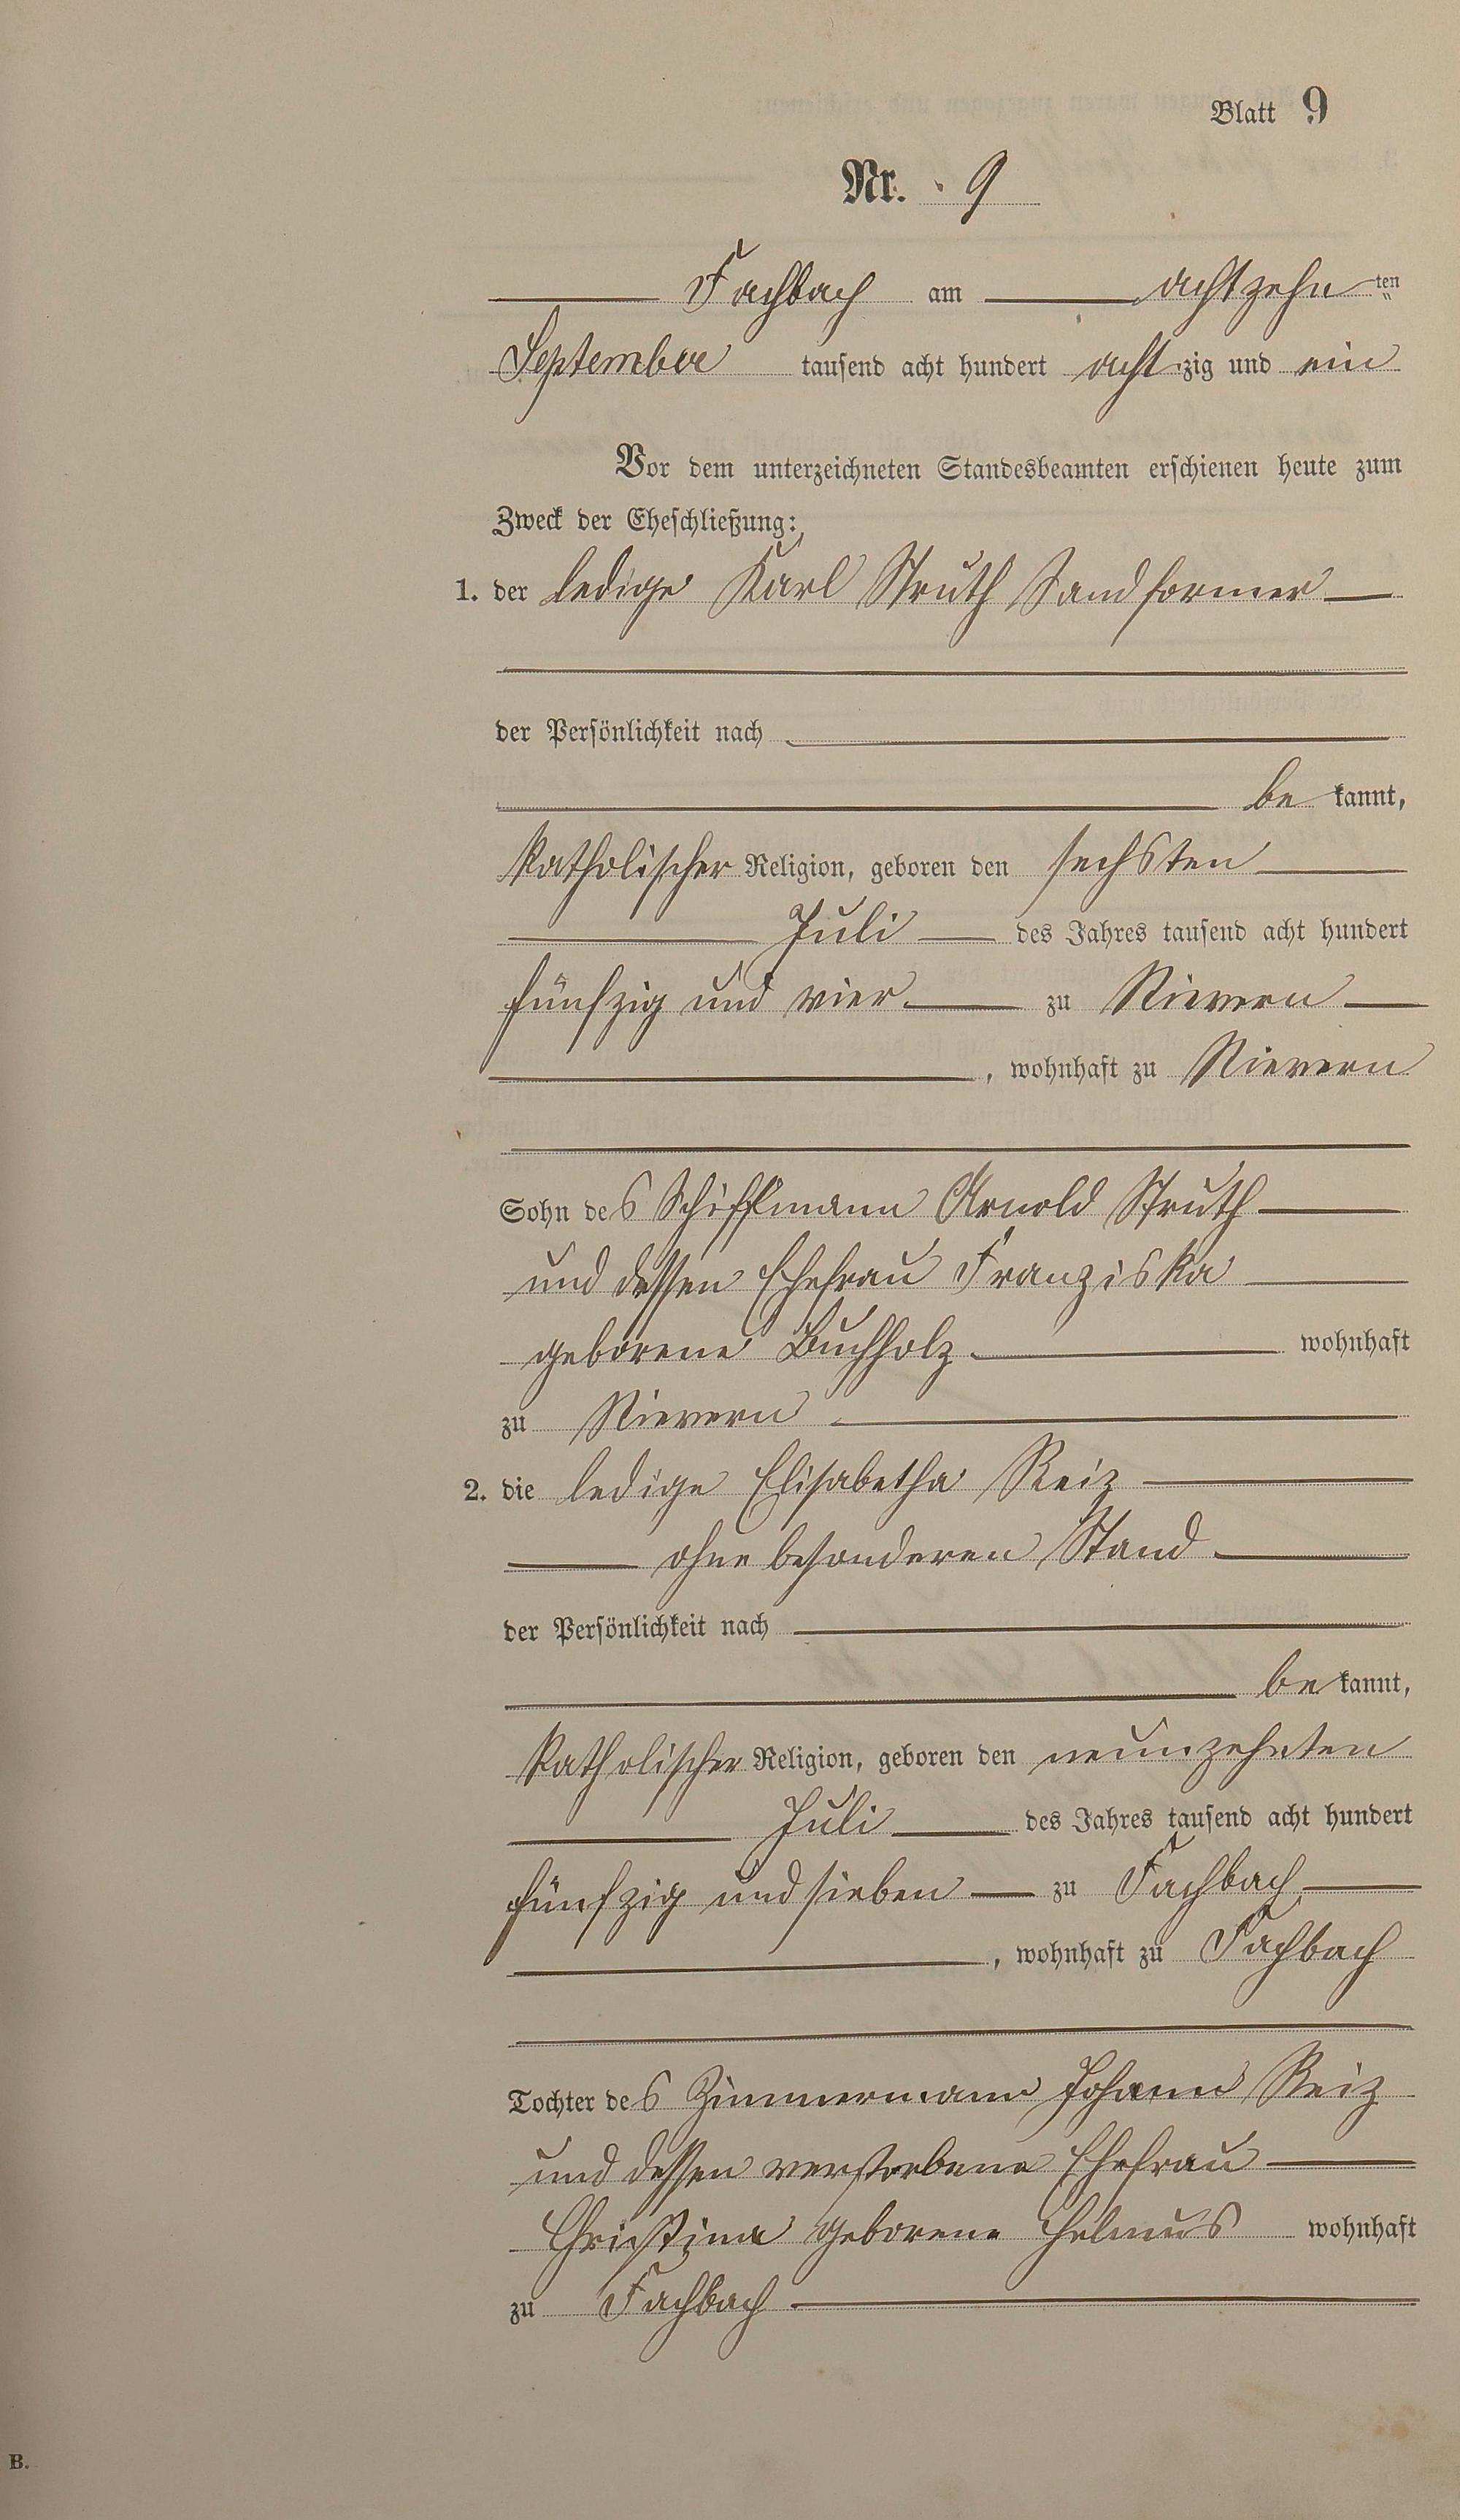 Blatt 9
Nr. 9
Fachbach am achtzehnten
September tausend acht hundert achtzig und ein
Vor dem unterzeichneten Standesbeamten erschienen heute zum
Zweck der Eheschließung:
1. der ledige Karl Struth Sandformer
der Persönlichkeit nach
be kannt,
katholischer Religion, geboren den sechsten
Juli des Jahres tausend acht hundert
fünfzig und vier zu Nievern
, wohnhaft zu Nievern
Sohn des Schiffmann Arnold Struth
und dessen Ehefrau Franziska
geborene Buchholz wohnhaft
zu Nievern
2. die ledige Elisabetha Reiz
ohne besonderen Stand
der Persönlichkeit nach
be kannt,
katholischer Religion, geboren den neunzehnten
Juli des Jahres tausend acht hundert
fünfzig und sieben zu Fachbach
, wohnhaft zu Fachbach
Tochter des Zimmermann Johann Reiz
und dessen verstorbene Ehefrau
Christina geborene wohnhaft
zu Fachbach
B.